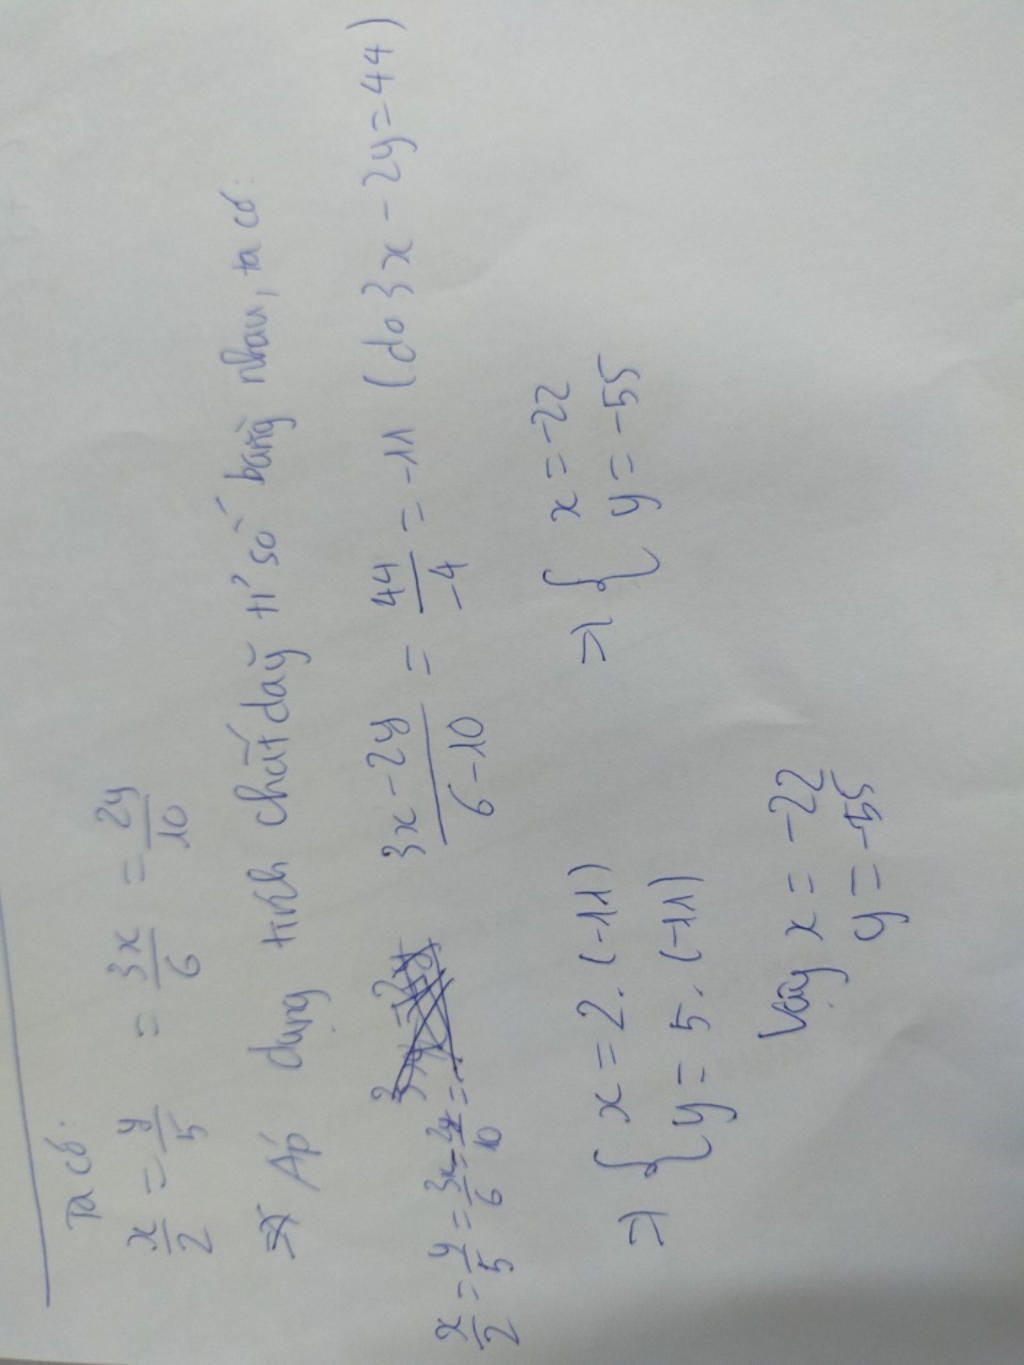 Ta có:
x/2 = y/5 = 3x/6 = 2y/10
=> Áp dụng tính chất dãy tỉ số bằng nhau, ta có:
x/2 = y/5 = 3x/6 = 2y/10 = 3x-2y/6-10 = 44/-4 = -11 (do 3x - 2y = 44)
=> { x = 2. (-11) => { x = -22
y = 5. (-11) y = -55
Vậy x = -22
y = -55